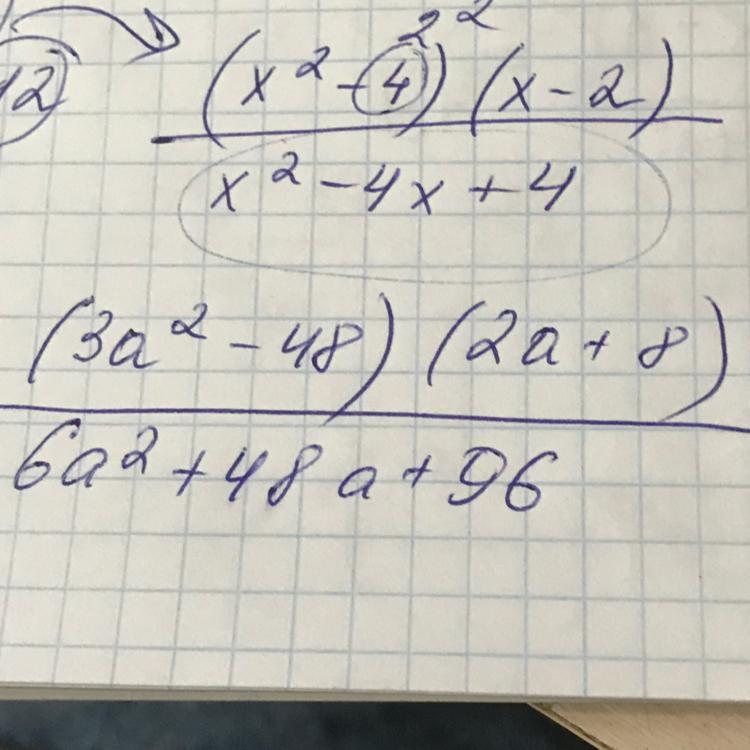 2²
12 (x² - 4) (x - 2)
x² - 4x + 4
(3a² - 48) (2a + 8)
6a² + 48a + 96